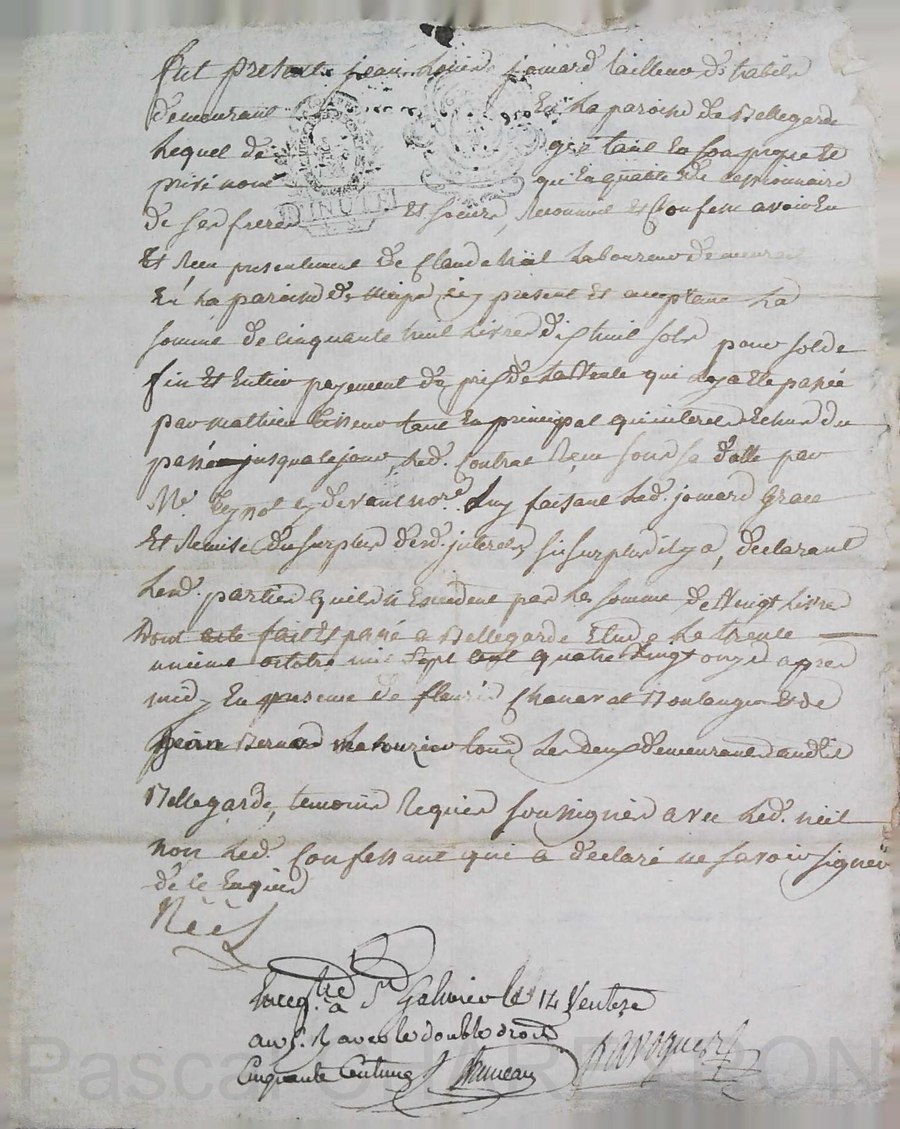 fut present jean jouard tailleur d'habits
demeurant en la paroisse de Bellegarde
lequel de gré tant en son propre et
privé nom qu'en qualité de cessionnaire
de ses freres et soeurs, reconnut et confesse avoir eu
et reçu presentement de Claude Néel laboureur demeurant
en la paroisse de icy present et acceptant la
somme de cinquante huit livres dix huit sols pour solde
fin et entier payement du prix de la vente qui luy a eté passée
par mathieu tant en principal qu'interets echus du
passé jusqu'a ce jour, led. contrat reçu sous sa datte par
Me. cy devant nore. luy faisant led. jouard grace
et remise du surplus desd. interets si surplus il y a, declarant
lesd. parties qu'elles n'excedent pas la somme de vingt livres
dont acte fait et passé a Bellegarde Etude le trente
unieme octobre mil sept cent quatre vingt onze apres
midy en presence de fleurie Chanavat Boulanger et de
jean Bernard tous les deux demeurants audit
Bellegarde, temoins requis soussignés avec led. néel
non led. confessant qui a declaré ne savoir signer
de ce enquis
Néel
D'INUTE
Enregtré à St Galmier le 14 Ventose
an 5. R avec le double droit
Cinquante Centimes
Pascal CHARETON